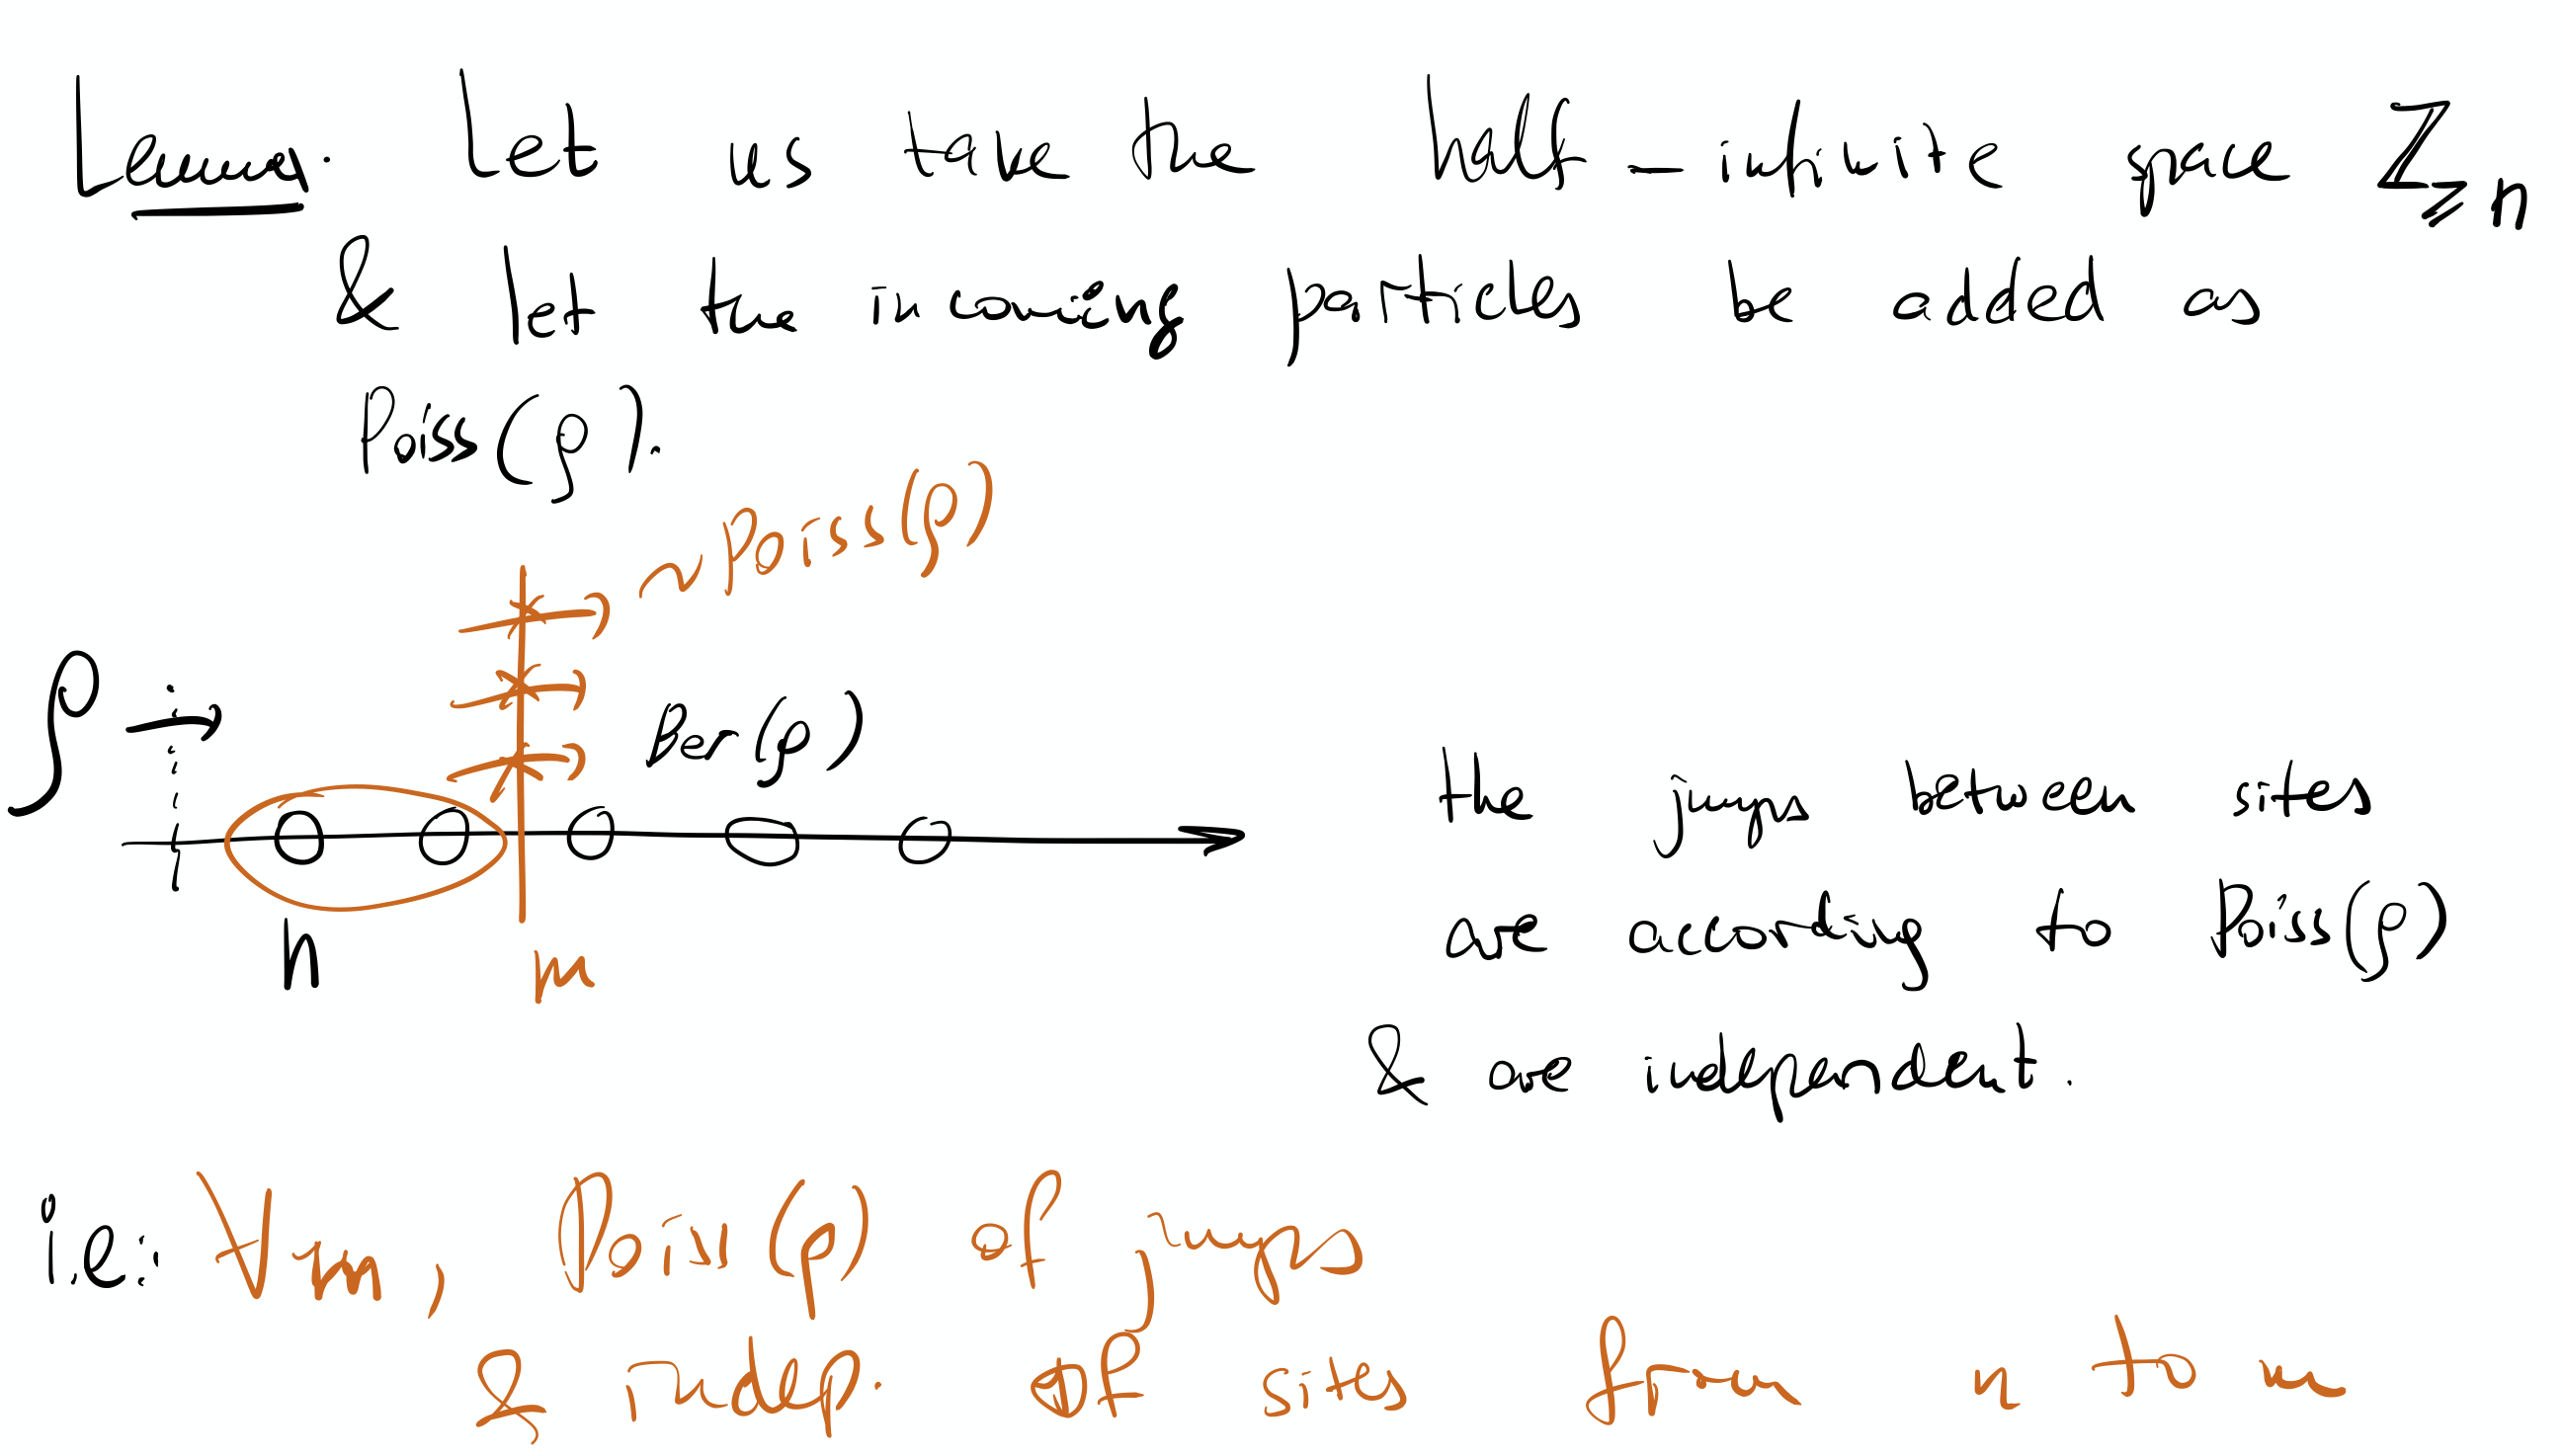 Lemma. Let us take the half-infinite space ℤ≥n
& let the incoming particles be added as
Poiss(ρ).
~Poiss(ρ)
ρ
Ber(ρ)
n
m
the jumps between sites
are according to Poiss(ρ)
& are independent.
i.e.: ∀m, Poiss(ρ) of jumps
& indep. of sites from n to m